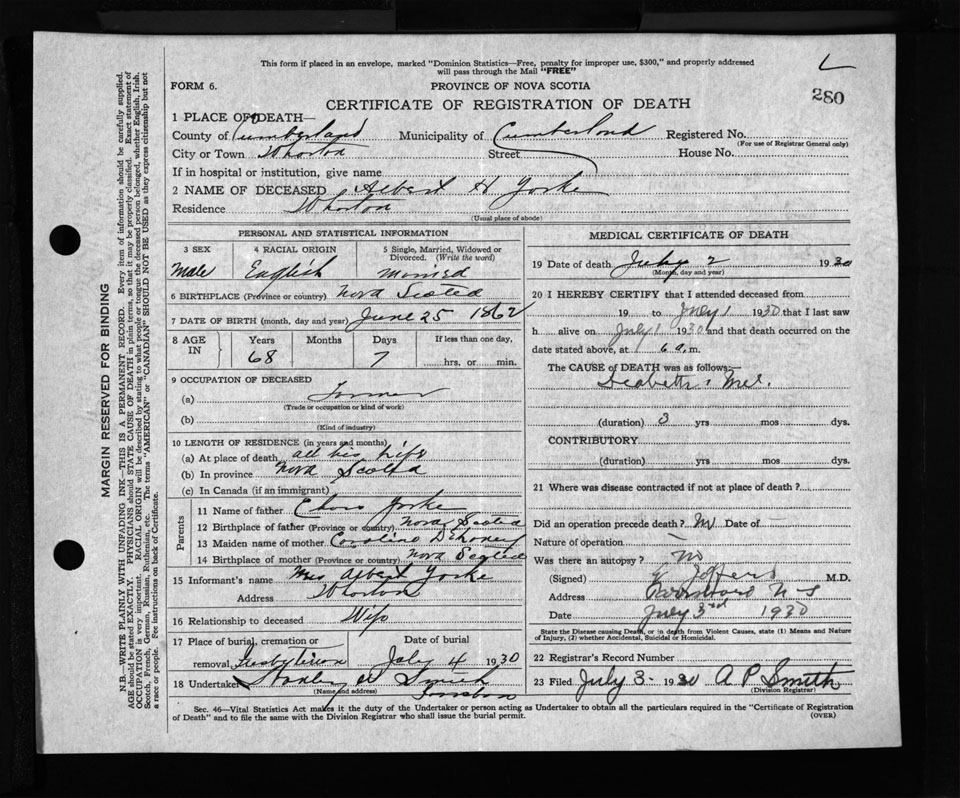 This form if placed in an envelope, marked "Dominion Statistics—Free, penalty for improper use, $300," and properly addressed
will pass through the Mail "FREE"
FORM 6.
PROVINCE OF NOVA SCOTIA
280
CERTIFICATE OF REGISTRATION OF DEATH
1 PLACE OF DEATH—
County of Cumberland Municipality of Cumberland Registered No.
(For use of Registrar General only)
City or Town Wharton Street House No.
If in hospital or institution, give name
2 NAME OF DECEASED Albert H. Yorke
Residence Wharton
(Usual place of abode)
PERSONAL AND STATISTICAL INFORMATION
3 SEX 4 RACIAL ORIGIN 5 Single, Married, Widowed or
Divorced. (Write the word)
Male English Married
6 BIRTHPLACE (Province or country) Nova Scotia
7 DATE OF BIRTH (month, day and year) June 25 1862
8 AGE IN Years Months Days If less than one day,
68 7 hrs. or min.
9 OCCUPATION OF DECEASED
(a) Farmer
(Trade or occupation or kind of work)
(b)
(Kind of industry)
10 LENGTH OF RESIDENCE (in years and months)
(a) At place of death all his life
(b) In province Nova Scotia
(c) In Canada (if an immigrant)
Parents
11 Name of father Yorke
12 Birthplace of father (Province or country) Nova Scotia
13 Maiden name of mother Caroline
14 Birthplace of mother (Province or country) Nova Scotia
15 Informant's name Mrs Albert Yorke
Address Wharton
16 Relationship to deceased Wife
17 Place of burial, cremation or Date of burial
removal July 4 1930
18 Undertaker Smith
(Name and address)
MEDICAL CERTIFICATE OF DEATH
19 Date of death July 2 1930
(Month, day and year)
20 I HEREBY CERTIFY that I attended deceased from
19 to July 1 1930 that I last saw
h alive on July 1 1930 and that death occurred on
date stated above, at 6 a.m.
The CAUSE of DEATH was as follows:—
(duration) 3 yrs mos dys.
CONTRIBUTORY
(duration) yrs mos dys.
21 Where was disease contracted if not at place of death?
Did an operation precede death? No Date of
Nature of operation
Was there an autopsy? No
(Signed) Jeffers M.D.
Address N-S
Date July 3rd 1930
State the Disease causing Death, or in death from Violent Causes, state (1) Means and Nature
of Injury, (2) whether Accidental, Suicidal or Homicidal.
22 Registrar's Record Number
23 Filed July 3 1930 A P Smith
(Division Registrar)
Sec. 46—Vital Statistics Act makes it the duty of the Undertaker or person acting as Undertaker to obtain all the particulars required in the "Certificate of Registration
of Death" and to file the same with the Division Registrar who shall issue the burial permit.
(OVER)
MARGIN RESERVED FOR BINDING
N.B.—WRITE PLAINLY WITH UNFADING INK—THIS IS A PERMANENT RECORD. Every item of information should be carefully supplied.
AGE should be stated EXACTLY. PHYSICIANS should STATE CAUSE OF DEATH in plain terms, so that it may be properly classified. Exact statement of
OCCUPATION is very important. RACIAL ORIGIN will be described by stating to what people or tongue the deceased person belonged, whether English, Irish,
Scotch, French, German, Russian, Ruthenian, etc. The terms "AMERICAN" or "CANADIAN" SHOULD NOT BE USED as they express citizenship but not
a race or people. See instructions on back of Certificate.